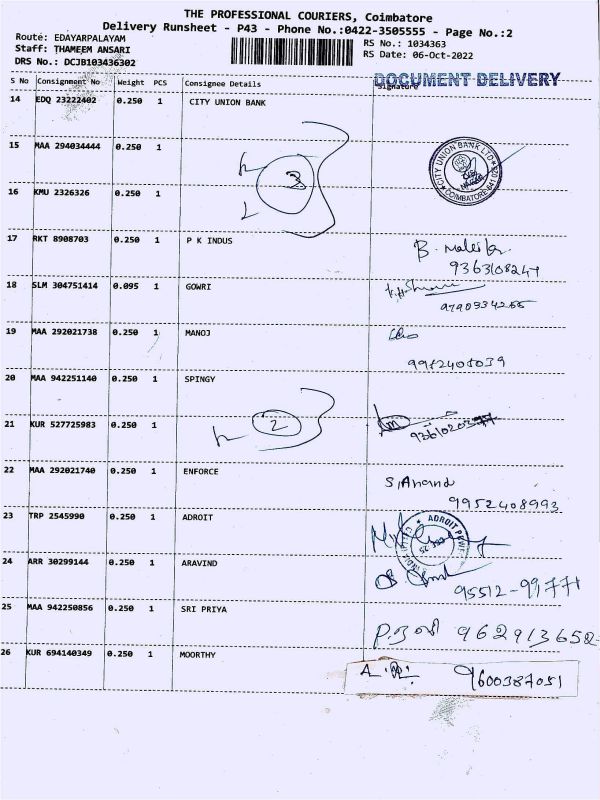 THE PROFESSIONAL COURIERS, Coimbatore
Delivery Runsheet - P43 - Phone No.:0422-3505555 - Page No.:2
Route: EDAYARPALAYAM
Staff: THAMEEM ANSARI
DRS No.: DCJB103436302
RS No.: 1034363
RS Date: 06-Oct-2022
DOCUMENT DELIVERY
S No Consignment No Weight PCS Consignee Details Signature
14 EDQ 23222402 0.250 1 CITY UNION BANK
15 MAA 294034444 0.250 1
3
CITY UNION BANK LTD
COIMBATORE 641 025
16 KMU 2326326 0.250 1
17 RKT 8908703 0.250 1 P K INDUS
9363108247
18 SLM 304751414 0.095 1 GOWRI
19 MAA 292021738 0.250 1 MANOJ
20 MAA 942251140 0.250 1 SPINGY
21 KUR 527725983 0.250 1
2
22 MAA 292021740 0.250 1 ENFORCE
S. Anand
9952408993
23 TRP 2545990 0.250 1 ADROIT
ADROIT
24 ARR 30299144 0.250 1 ARAVIND
95512-99771
25 MAA 942250856 0.250 1 SRI PRIYA
962913658
26 KUR 694140349 0.250 1 MOORTHY
9600387051